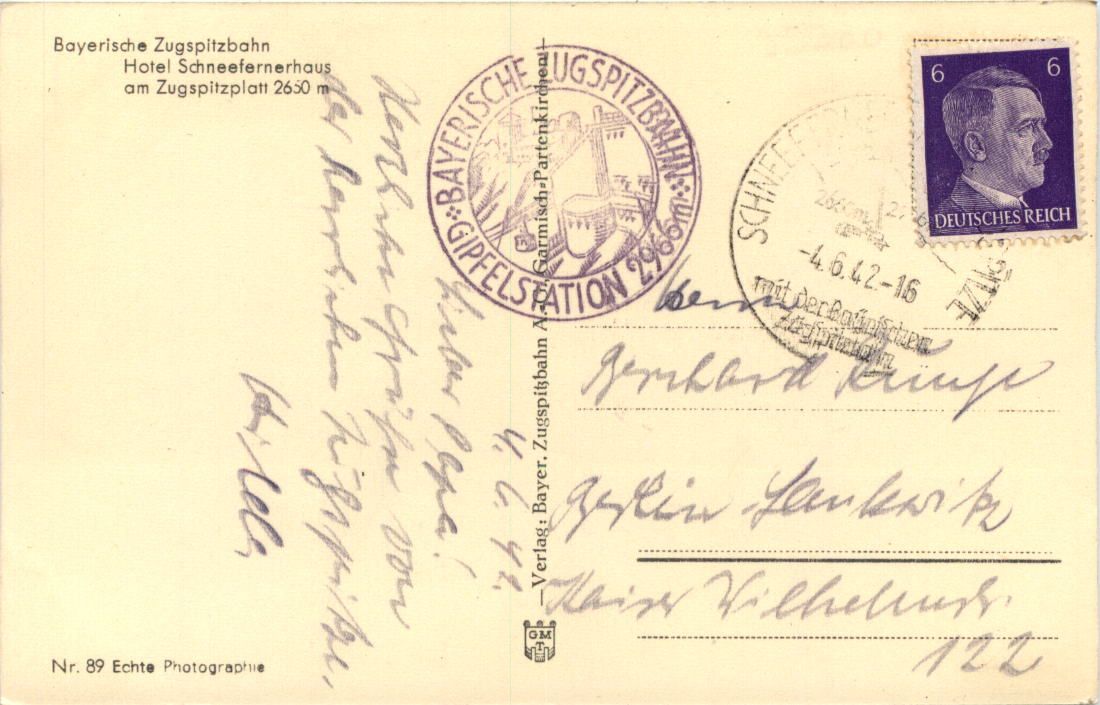 Bayerische Zugspitzbahn
Hotel Schneefernerhaus
am Zugspitzplatt 2650 m
4. 6. 42.
Lieber Papa!
Herzliche Grüße von
der herrlichen Zugspitze,
Nr. 89 Echte Photographie
BAYERISCHE ZUGSPITZBAHN
GIPFELSTATION 2966m
—Verlag: Bayer. Zugspitzbahn A.G. Garmisch-Partenkirchen—
GMT
6 6
DEUTSCHES REICH
2650m
-4.6.42.-16
mit der Bayerischen
Zugspitzbahn
Herrn
Gerhard Runge
Berlin-Lankwitz
Kaiser Wilhelmstr.
122